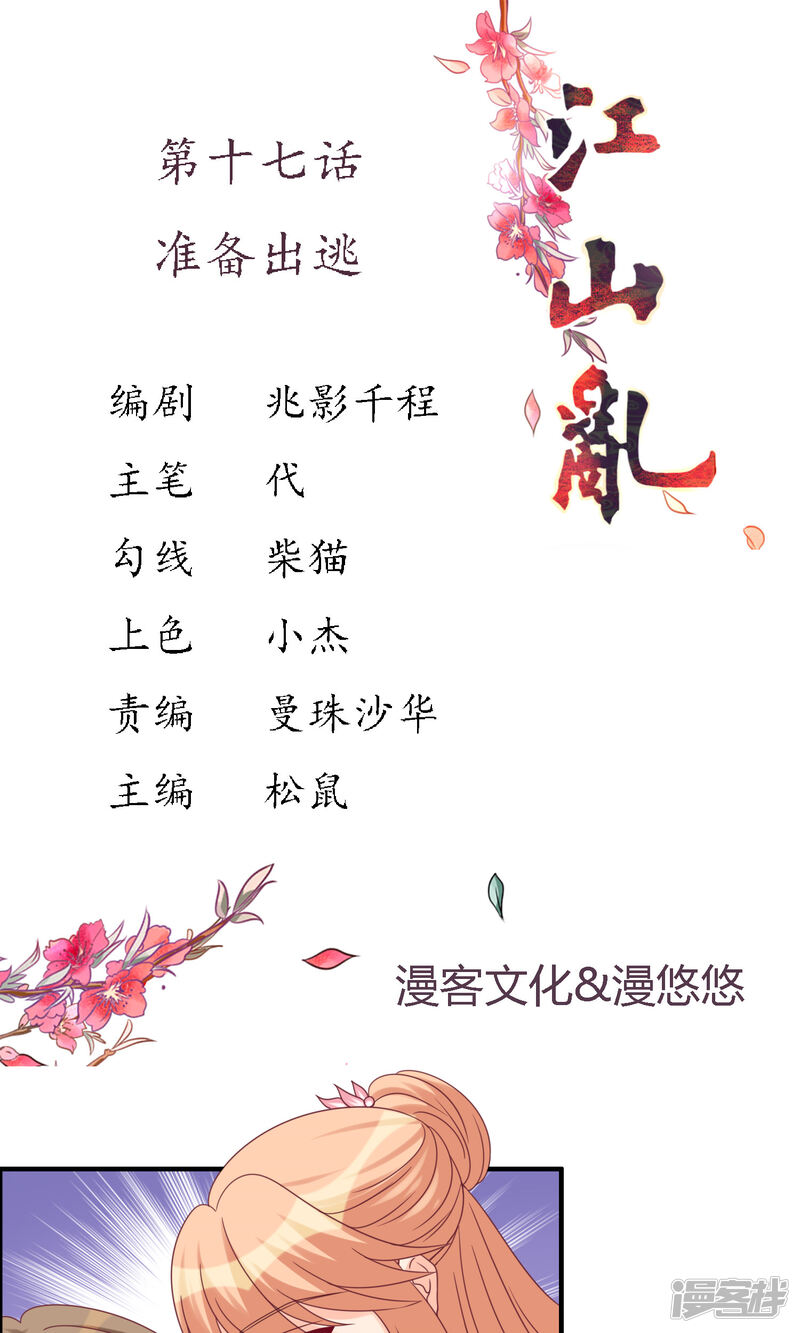 江山亂
第十七话
准备出逃
编剧 兆影千程
主笔 代
勾线 柴猫
上色 小杰
责编 曼珠沙华
主编 松鼠
漫客文化&漫悠悠
漫客栈